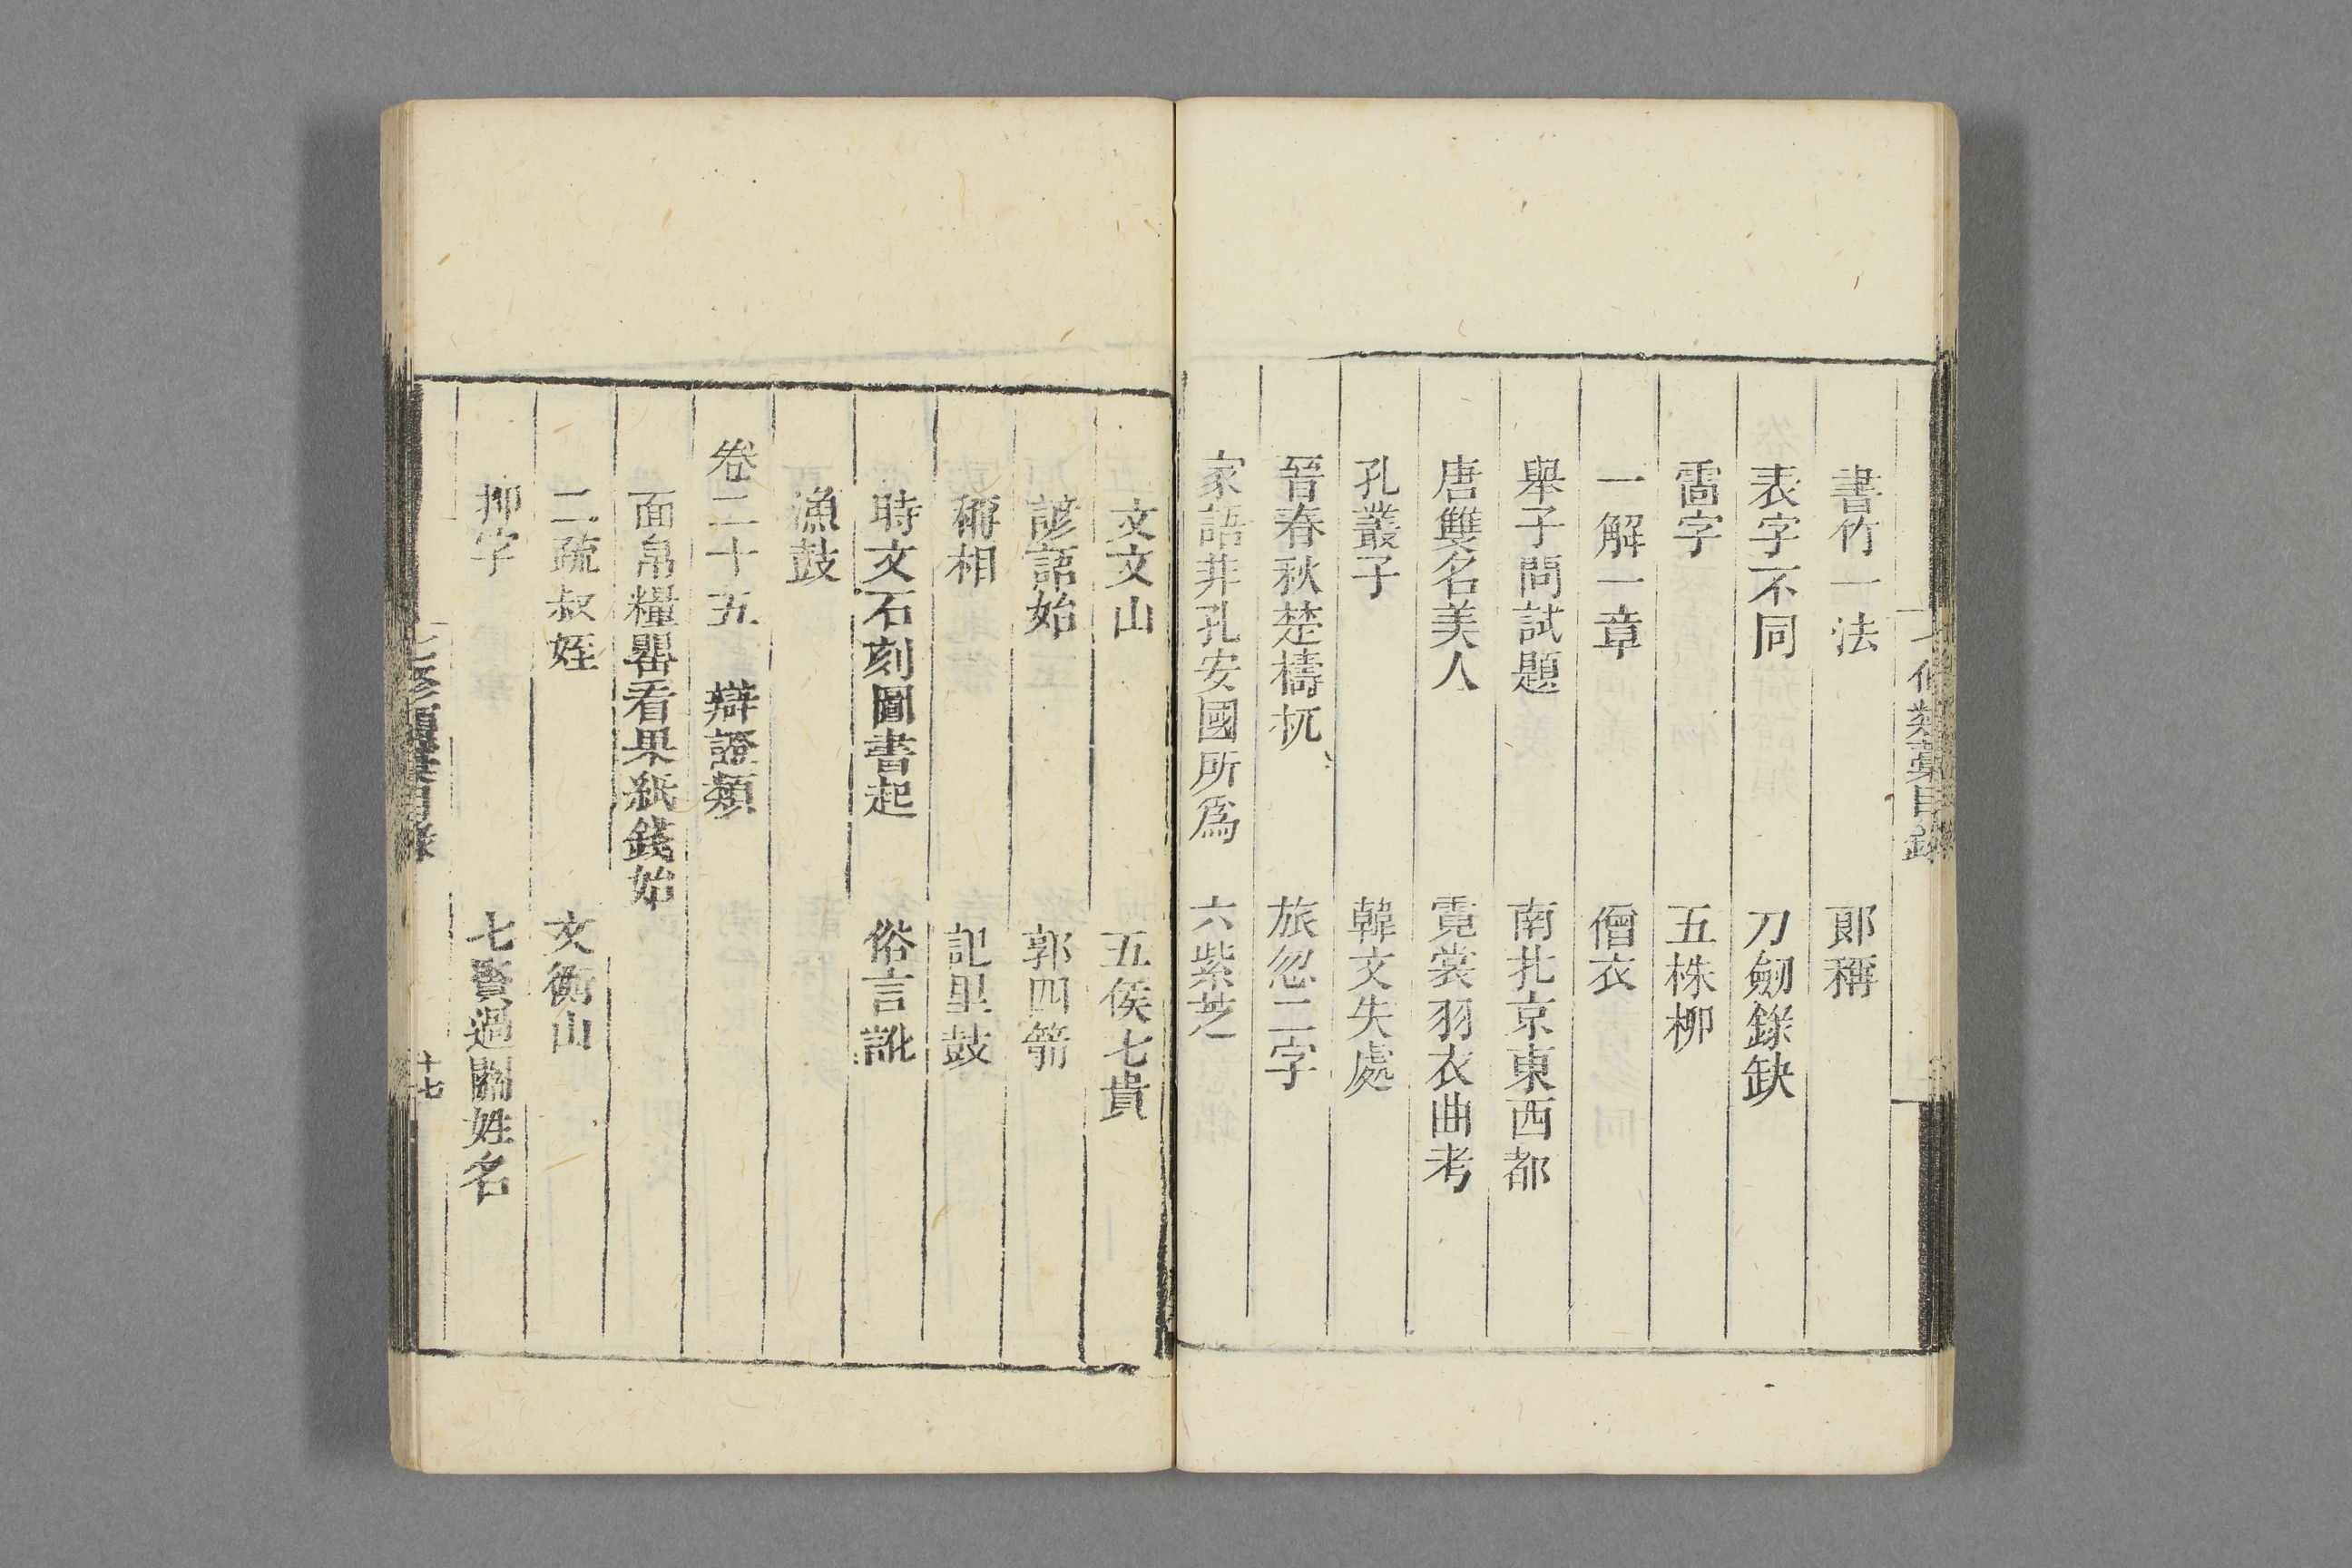 七修類藁目錄
書竹一法　郞稱
表字不同　刀劒錄缺
雷字　五株柳
一解一章　僧衣
舉子問試題　南北京東西都
唐雙名美人　霓裳羽衣曲考
孔叢子　韓文失處
晉春秋楚檮杌　旅忽二字
家語非孔安國所爲　六紫芝
文文山　五侯七貴
諺語始　郭四箭
稱相　記里鼓
時文石刻圖書起　俗言訛
漁鼓
卷二十五　辯證類
面帛糧罌看果紙錢始
二疏叔姪　文衡山
抑字　七賢過關姓名
七修類藁目錄　十七